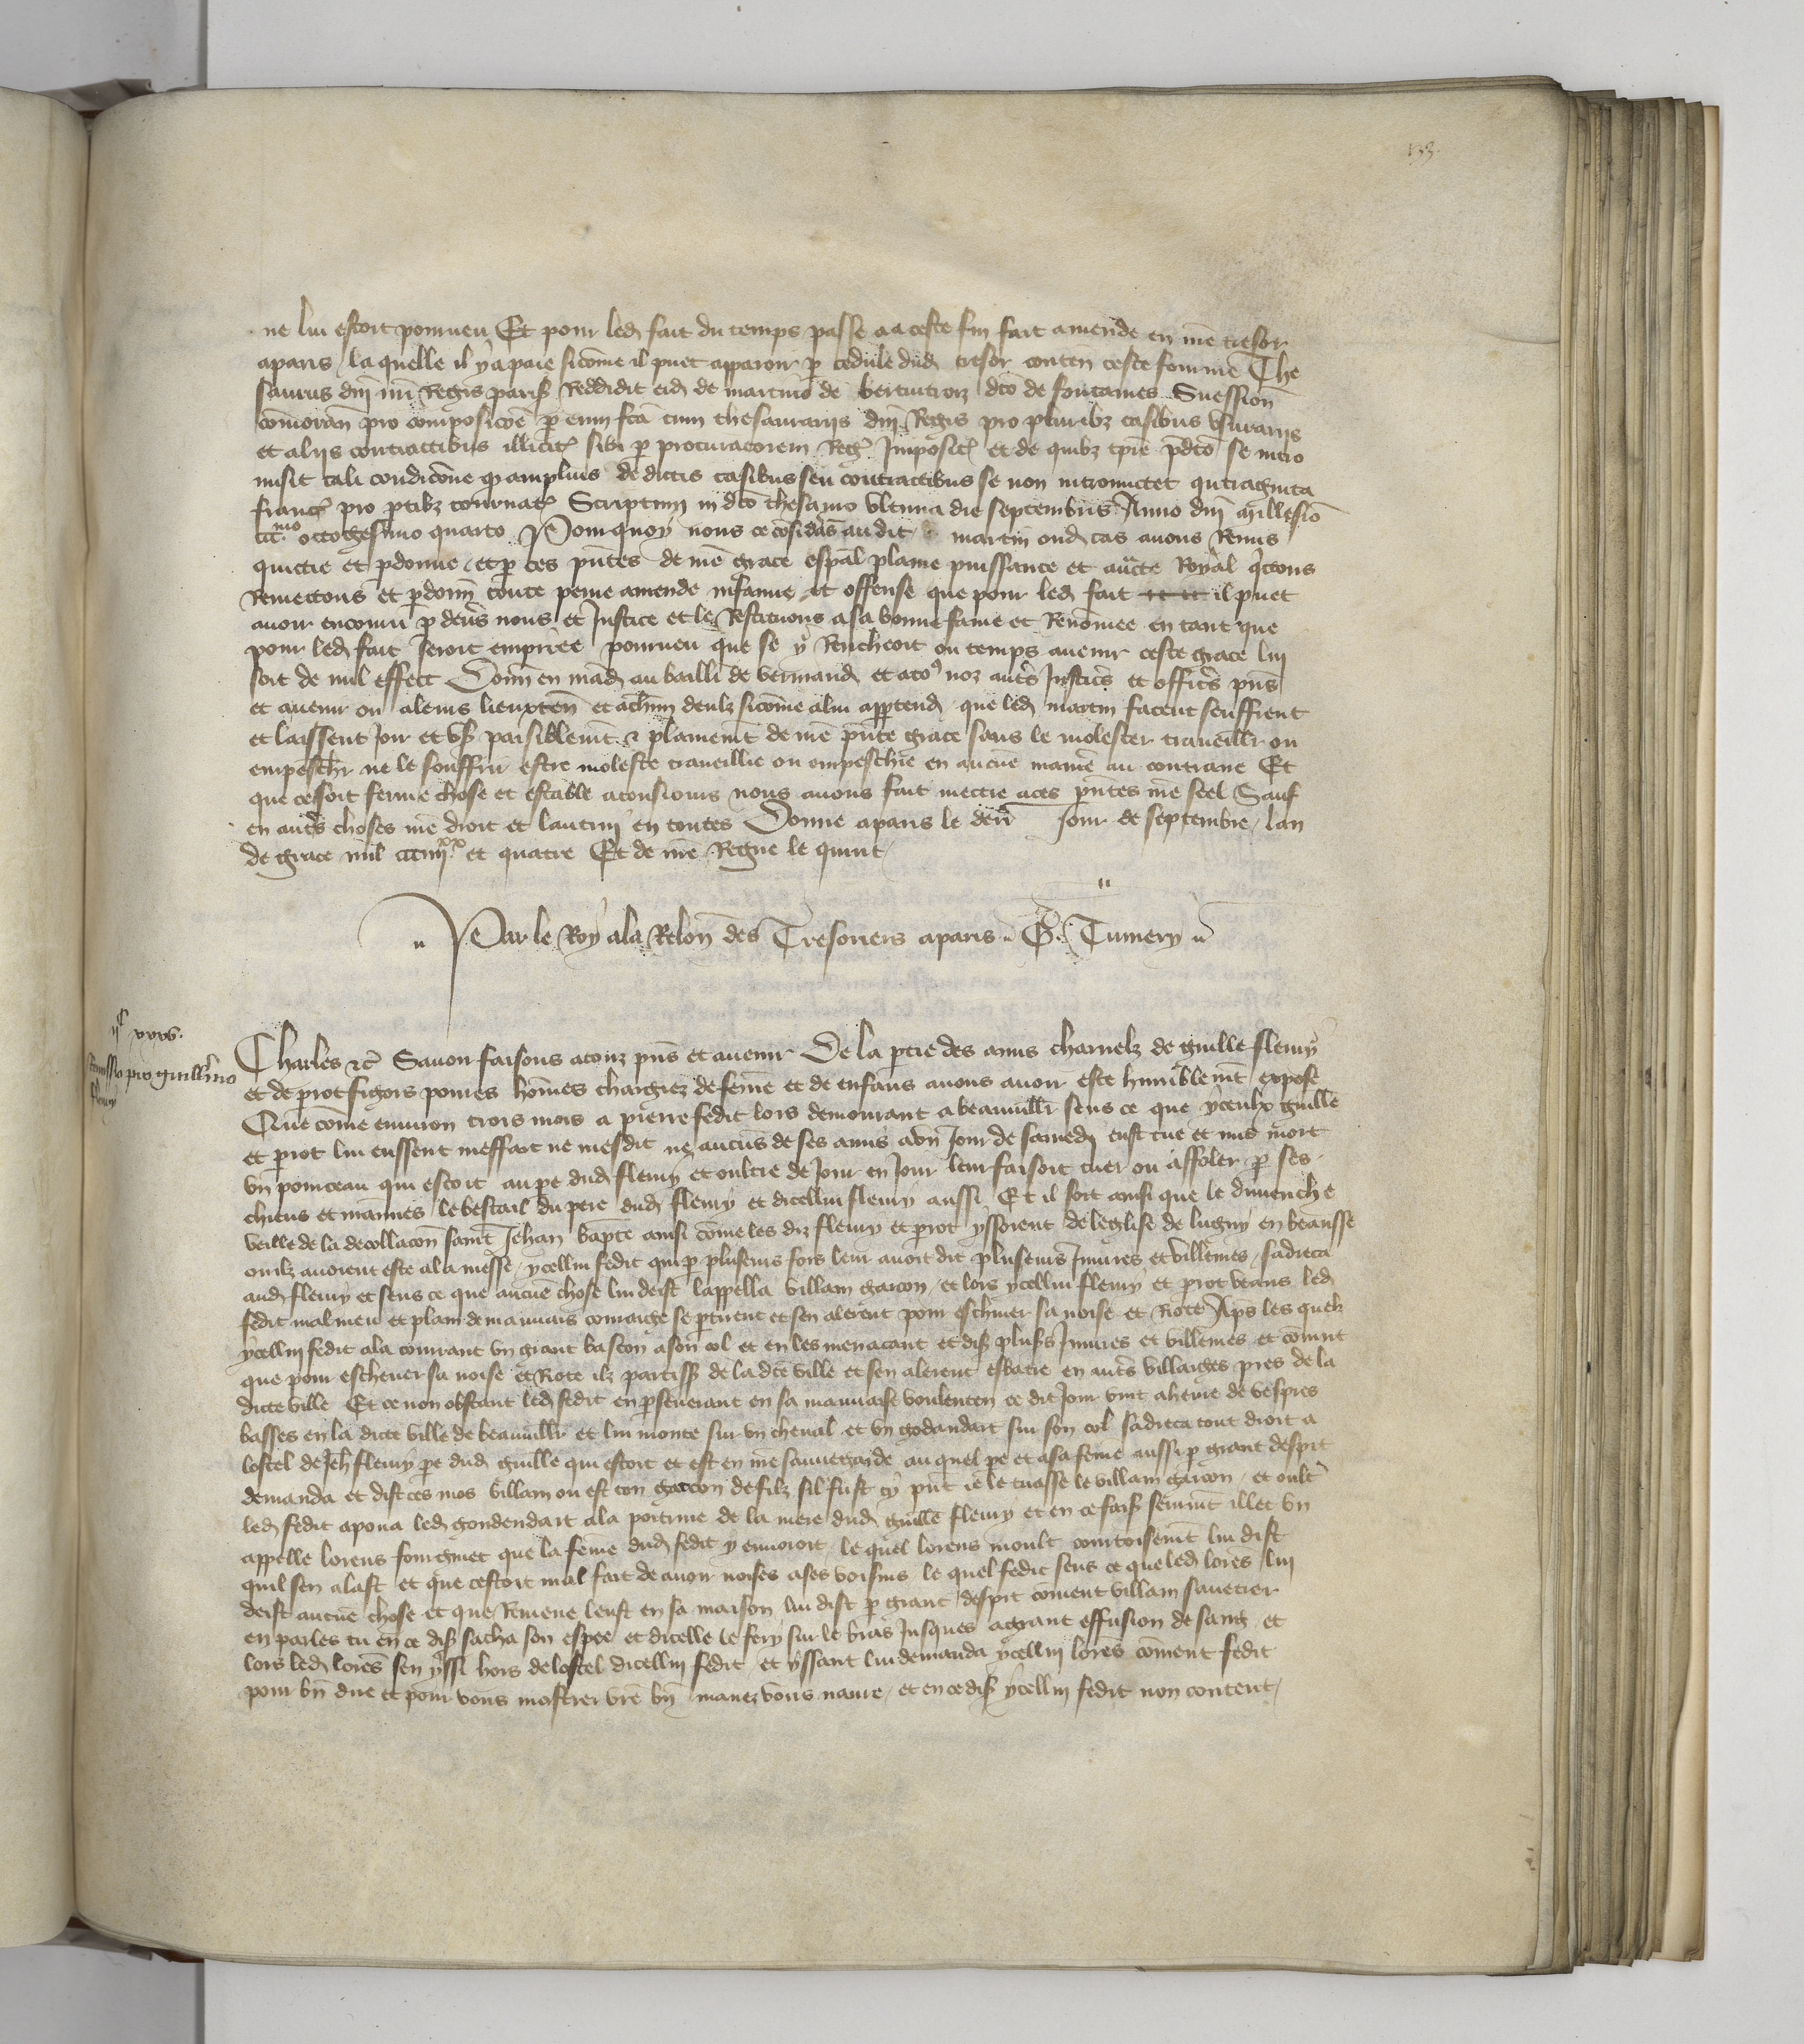 133.
ne lui estoit pourueu Et pour led fait du temps passe a a ceste fin fait amende en nr̄e tresor
a paris / la quelle il y a paie sicōme il puet apparoir ꝑ cedule dud tresor conten̄ ceste fourme The
saurus dn̄i nr̄i Regis paris̄ Reddidit eid de martino de dc̄o de fontaines Suession̄
cōmoran̄ pro composicōe ꝑ eum fc̄a cum thesaurariis dn̄i Regis pro pluribz casibus vsurariis
et aliis contractibus illicit̄ sibi ꝑ procuratorem Reḡ Imposit̄ et de quibz p̄dc̄o se intro
misit tali condicōne ꝙ amplius de dictis casibus seu contractibus se non intromictet quadraginta
franc̄ pro ꝑtibz tournac̄ Scriptum in dc̄o thesauro vltima die septembris Anno dn̄i millesīo
ccc.mo octogesimo quarto Pour quoy nous ce cōsideran̄ au dit martin oud cas auons Remis
quictie et ꝑdonne / et ꝑ ces pn̄tes de nr̄e grace esp̄al plaine puissance et auc̄te Royal q̄ctons
Remectons et ꝑdonn̄ toute peine amende infamie et offense que pour led fait il puet
auoir encouru ꝑ deūs nous et Justice et le Restituons a sa bonne fame et Renōmee en tant que
pour led fait seroit empiree pourueu que se y Rencheoit ou temps auenir ceste grace lui
soit de nul effect Donn̄ en mand au bailli de vermand et a tous noz autr̄s Justic̄s et offic̄s pn̄s
et auenir ou a leurs lieuxten̄ et a chūn deulz sicōme a lui appartend que led martin facent seuffrent
et laissent Joir et vs̄ paisiblemt̄ ⁊ plainemt̄ de nr̄e pn̄te grace sans le molester trauaill̄r ou
empesch̄r ne le souffrir estre moleste trauaillie ou empeschie en aucūe maniē au contraire Et
que ce soit ferme chose et estable a tousiours nous auons fait mectre a ces pn̄tes nr̄e seel Sauf
en autr̄s choses nr̄e droit et lautrui en toutes Donne a paris le den̄r Jour de septembre / lan
de grace mil ccciiijxx et quatre Et de nr̄e Regne le quint /
Par le Roy a la Relon̄ des Tresoriers a paris G. Tumery
ijC xxxv.
Remissio pro guill̄mo
fleury
Charles ⁊c̄ Sauoir faisons a touz pn̄s et auenir De la ꝑtie des amis charnelz de guille fleury
et de ꝑrot figois poures hōmes chargiez de fēme et de enfans auons auoir este humblemt̄ expose
Que cōme enuiron trois mois a pierre fedit lors demourant a beauuill̄r sens ce que yceulx guill̄e
et ꝑrot lui eussent meffait ne mesdit ne aucuns de ses amis a vn̄ Jour de samedj eust tue et mis mort
vn pourceau qui estoit au ꝑe dud fleury et oultre de Jour en Jour leur faisoit tuer ou affoler ꝑ ses
chiens et mastines le bestail du pere dud fleury et dicellui fleury aussi Et il soit ainsi que le dimenche
veille de la decollacon saint Jehan bapt̄e ainsi cōme les diz fleury et ꝑrot yssoient de leglise de lugny en beausse
ou ilz auoient este a la messe / ycellui fedit qui ꝑ pluseurs fois leur auoit dit pluseurs Iniures et villenies sadreca
aud fleury et sens ce que aucūe chose lui deist lappella villain garcon / et lors ycellui fleury et ꝑrot veans led
fedit mal meu et plain de mauuais couraige se ꝑtirent et sen alerent pour escheuer sa noise et Riote Ap̄s les quelz
ycellui fedit ala courant vn grant baston a son col et en les menacant et dis̄ plus̄s Iniures et villenies et cōuint
que pour escheuer sa noise et Riote ilz partiss̄ de la dc̄e ville et sen alerent esbatre en autr̄s villaiges pres de la
dicte ville Et ce non obstant led fedit en ꝑseuerant en sa mauuaise voulenten ce dit Jour vint a heure de vespres
basses en la dicte ville de beauuill̄r et lui monte sur vn cheual et vn godandart sur son col sadreca tout droit a
lostel de Jeh̄ fleury ꝑe dud guill̄e qui estoit et est en nr̄e sauuegarde au quel ꝑe et a sa fēme aussi ꝑ grant despit
demanda et dist ces mos villain ou est ton garcon de filz sil fust cy pn̄t ie le tuasse le villain garcon / et oultr̄
led fedit apoia led gondendart a la poitrine de la mere dud guill̄e fleury et en ce fais̄ seuruīt illec vn
appelle lorens fourginet que la fēme dud fedit y enuoioit / le quel lorens moult courtoisemt̄ lui dist
quil sen alast et que cestoit mal fait de auoir noises a ses voisins le quel fedit sens ce que led lorēs lui
deist aucūe chose et que Remene leust en sa maison lui dist ꝑ grant despit cōment villain sauetier
en parles tu en ce dis̄ sacha son espee et dicelle le fery sur le bras Jusques a grant effusion de sang et
lors led lorēs sen yssi hors de lostel dicellui fedit et yssant lui demanda ycellui lorēs cōment fedit
pour bn̄ dire et pour vous mostrer vr̄e bn̄ mauez vous naure / et en ce dis̄ ycellui fedit non content /